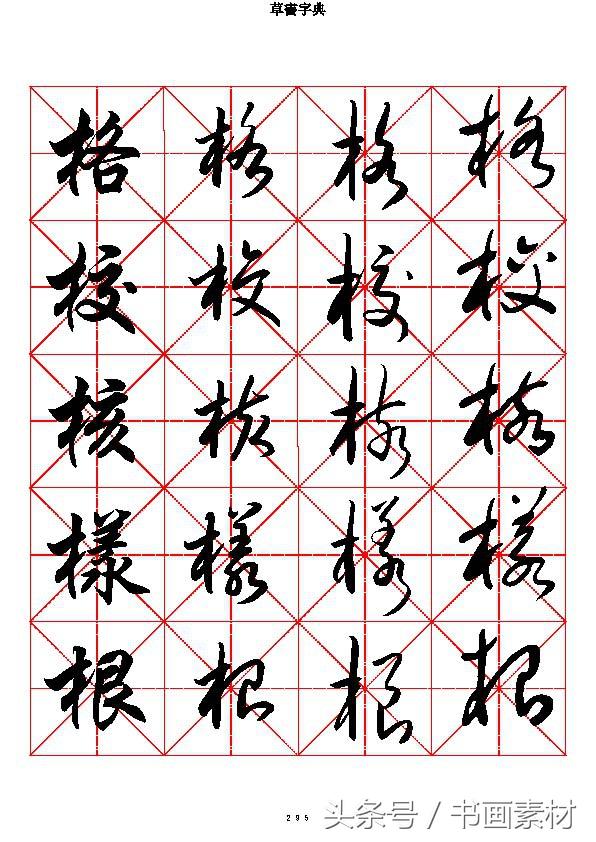 草書字典
格格格格
校校校校
核核核核
樣樣樣樣
根根根根
295
头条号 / 书画素材